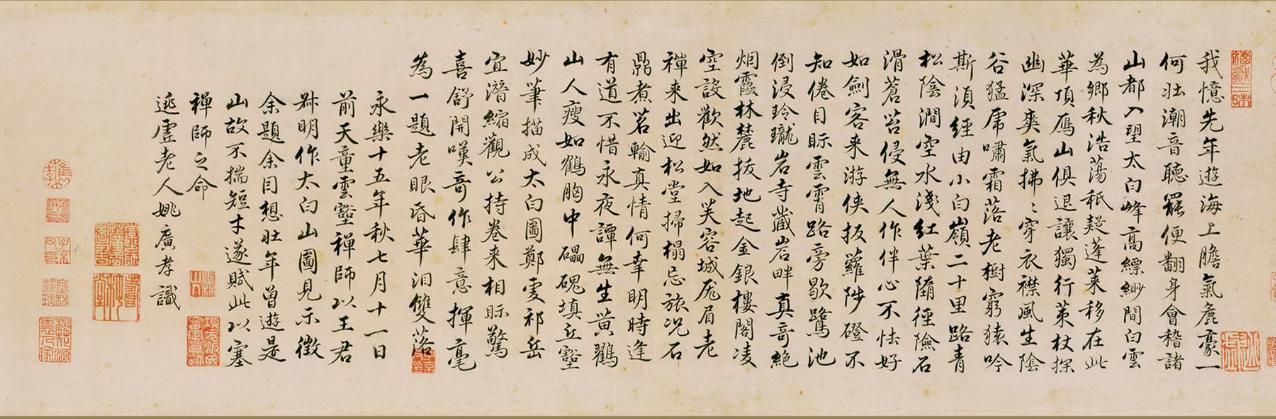 我憶先年遊海上膽氣麄豪一
何壯潮音聽罷便翻身會稽諸
山都入望太白峰高縹緲間白雲
為鄉秋浩蕩秖疑蓬萊移在此
華頂鴈山俱退讓獨行策杖探
幽深爽氣拂〻穿衣襟風生陰
谷猛席嘯霜落老樹窮猿吟
斯須經由小白嶺二十里路青
松陰澗空水淺紅葉墮徑險石
滑蒼苔侵無人作伴心不怯好
如劍客來游俠扳蘿陟磴不
知倦目眎雲霄路旁歇鷺池
倒浸玲瓏岩寺藏岩畔真奇絕
烟霞林麓拔地起金銀樓閣凌
空設歡然如入芙容城厖眉老
禪来出迎松堂掃榻忘旅况石
鼎煮茗輸真情何幸明時逢
有道不惜永夜譚無生黄鸝
山人瘦如鶴胸中礧磈填丘壑
妙筆描成太白圖鄭虔祁岳
宜潛縮觀公持卷来相眎驚
喜舒開嘆奇作肆意揮毫
為一題老眼昏華淚雙落
永樂十五年秋七月十一日
前天童雲壑禪師以王君
尗明作太白山圖見示徵
余題余因想壯年曾遊是
山故不揣短才遂賦此以塞
禪師之命
逃虛老人姚廣孝識